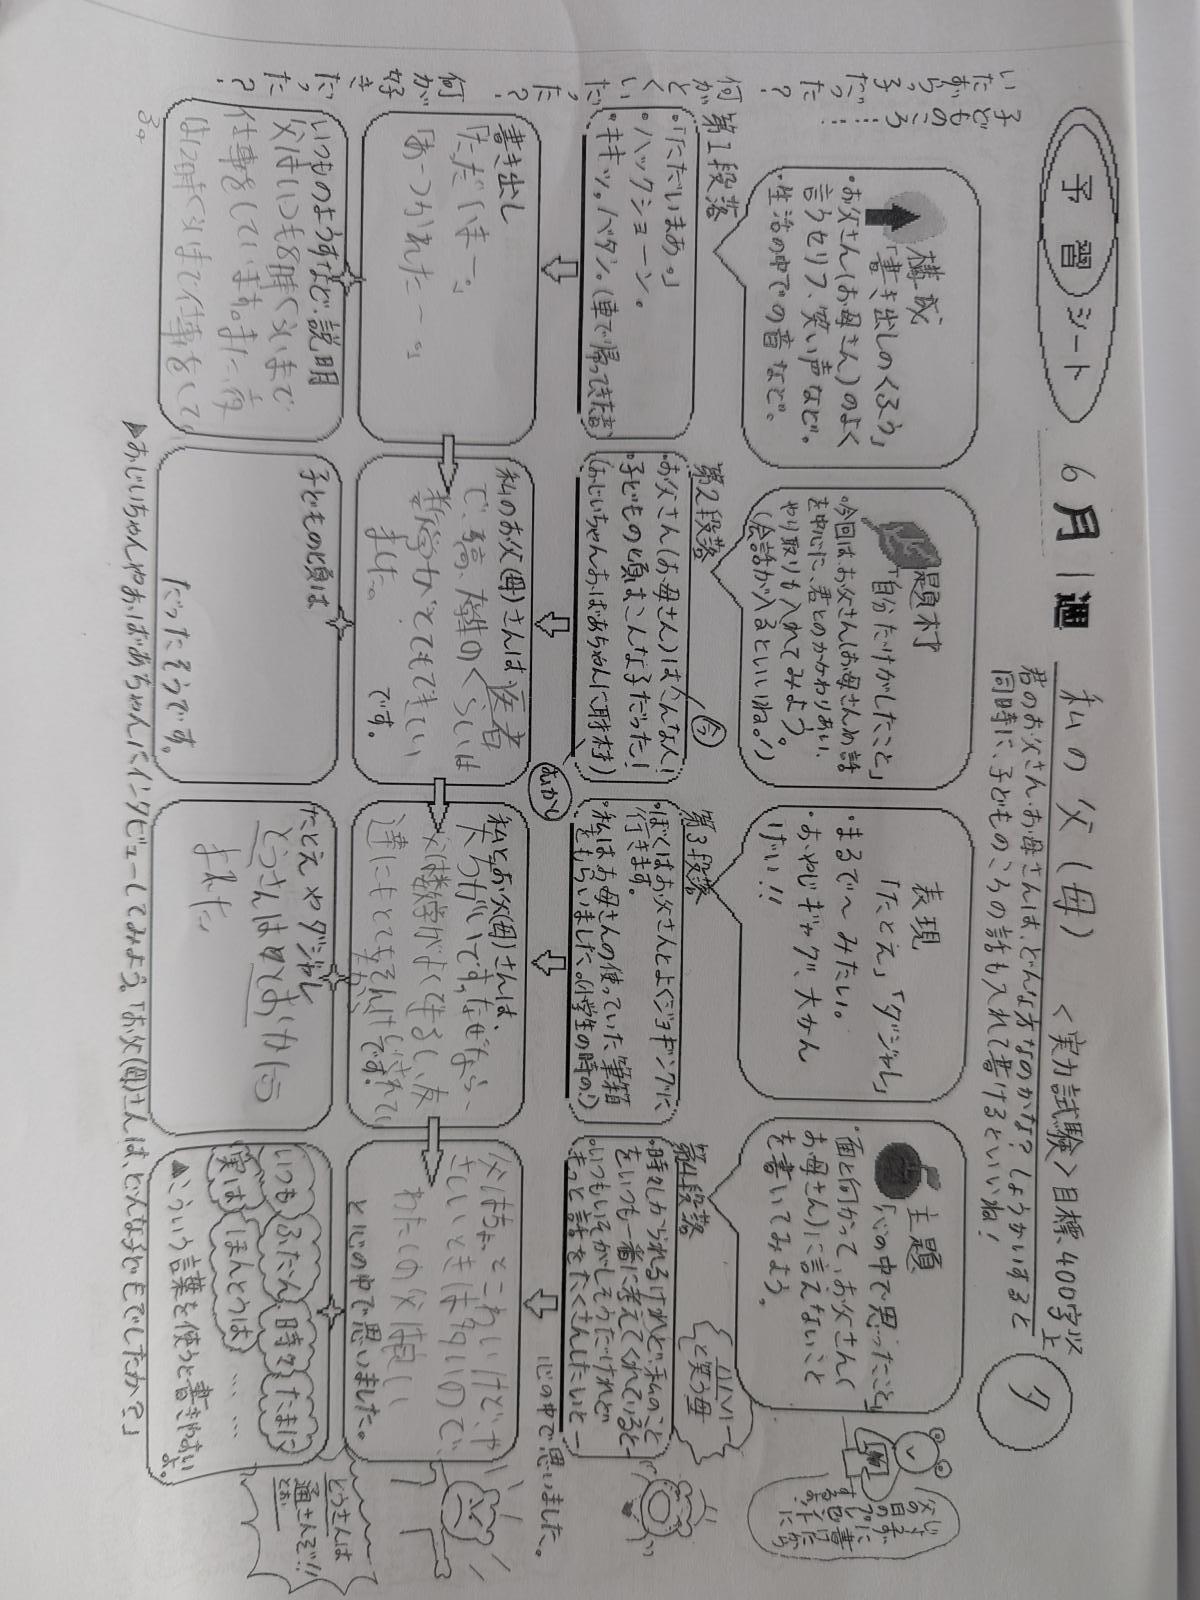 予習シート
6月1週
私の父（母）
<実力試験>目標400字以上
ク
君のお父さん・お母さんは、どんな方なのかな？しょうかいすると
同時に、子どものころの話も入れて書けるといいね！
構成
「書き出しのくふう」
・お父さん(お母さん)のよく
言うセリフ、笑い声など。
・生活の中での音など。
題材
「自分だけがしたこと」
・今回はお父さん(お母さん)の話
を中心に、君とのかかわりあい、
やり取りも入れてみよう。
(会話が入るといいね！)
表現
「たとえ」「ダジャレ」
・まるで〜みたい。
・おやじギャグ、大かん
げい!!
主題
「心の中で思ったこと」
・面と向かって、お父さん(
お母さん)に言えないこと
を書いてみよう。
子どものころ
いたずらっ子
だった？
何がとくい
だった？
何が好き
だった？
第1段落
・「ただいまあ。」
・ハックショーン。
・キキッ。バタン。(車で帰ってきた音)
第2段落
・お父さん(お母さん)はどんな人！
今
・子どもの頃はこんな子だった！
(おじいちゃんおばあちゃんに取材)
むかし
第3段落
・ぼくはお父さんとよくジョギングに
行きます。
・私はお母さんの使っていた筆箱
をもらいました。(小学生の時の！)
第4段落
ハハハー
と笑う母
・時々しかられるけれど、私のこと
をいつも一番に考えてくれていると―
・いつもいそがしそうだけれど
もっと話をたくさんしたいと―
心の中で思いました。
書き出し
「ただいまー。」
「あーつかれたー。」
私のお父(母)さんは医者
で、
です。
ました。
私とお父(母)さんは、
です。なぜなら、
父は数学がよくできるし、友
達にもとてもそんけいされてい
るからです。
父はちょっとこわいけど、や
さしいときは多いので、
わたしの父は良い
と心の中で思いました。
いつものようすなど、説明
父はいつも8時くらいまで
仕事をしています。また、夜
は12時くらいまで仕事をして
る。
子どもの頃は
だったそうです。
たとえ や ダジャレ
とうさんは
ました
いつも ふだん 時々 たまに
実は ほんとうは……
▲こういう言葉を使うと書きやすい
よ。
とうさんは
通さんぞ!!
▲おじいちゃんやおばあちゃんにインタビューしてみよう。「お父(母)さんは、どんな子どもでしたか？」